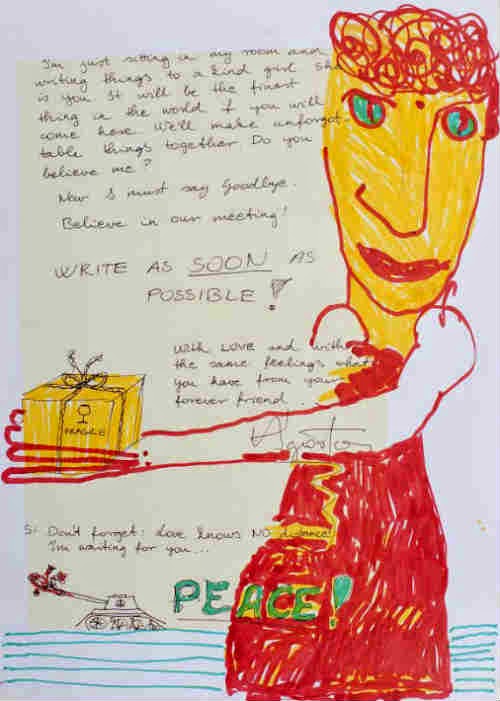 I'm just sitting in my room and
writing things to a kind girl She
is you It will be the finest
thing in the world if you will
come here We'll make unforget-
table things together Do you
believe me?
Now I must say Goodbye.
Believe in our meeting!
WRITE AS SOON AS
POSSIBLE!
With LOVE and with
the same feelings what
you have from your
forever friend
FRAGILE
S: Don't forget: Love knows NO distance!
I'm waiting for you...
PEACE!